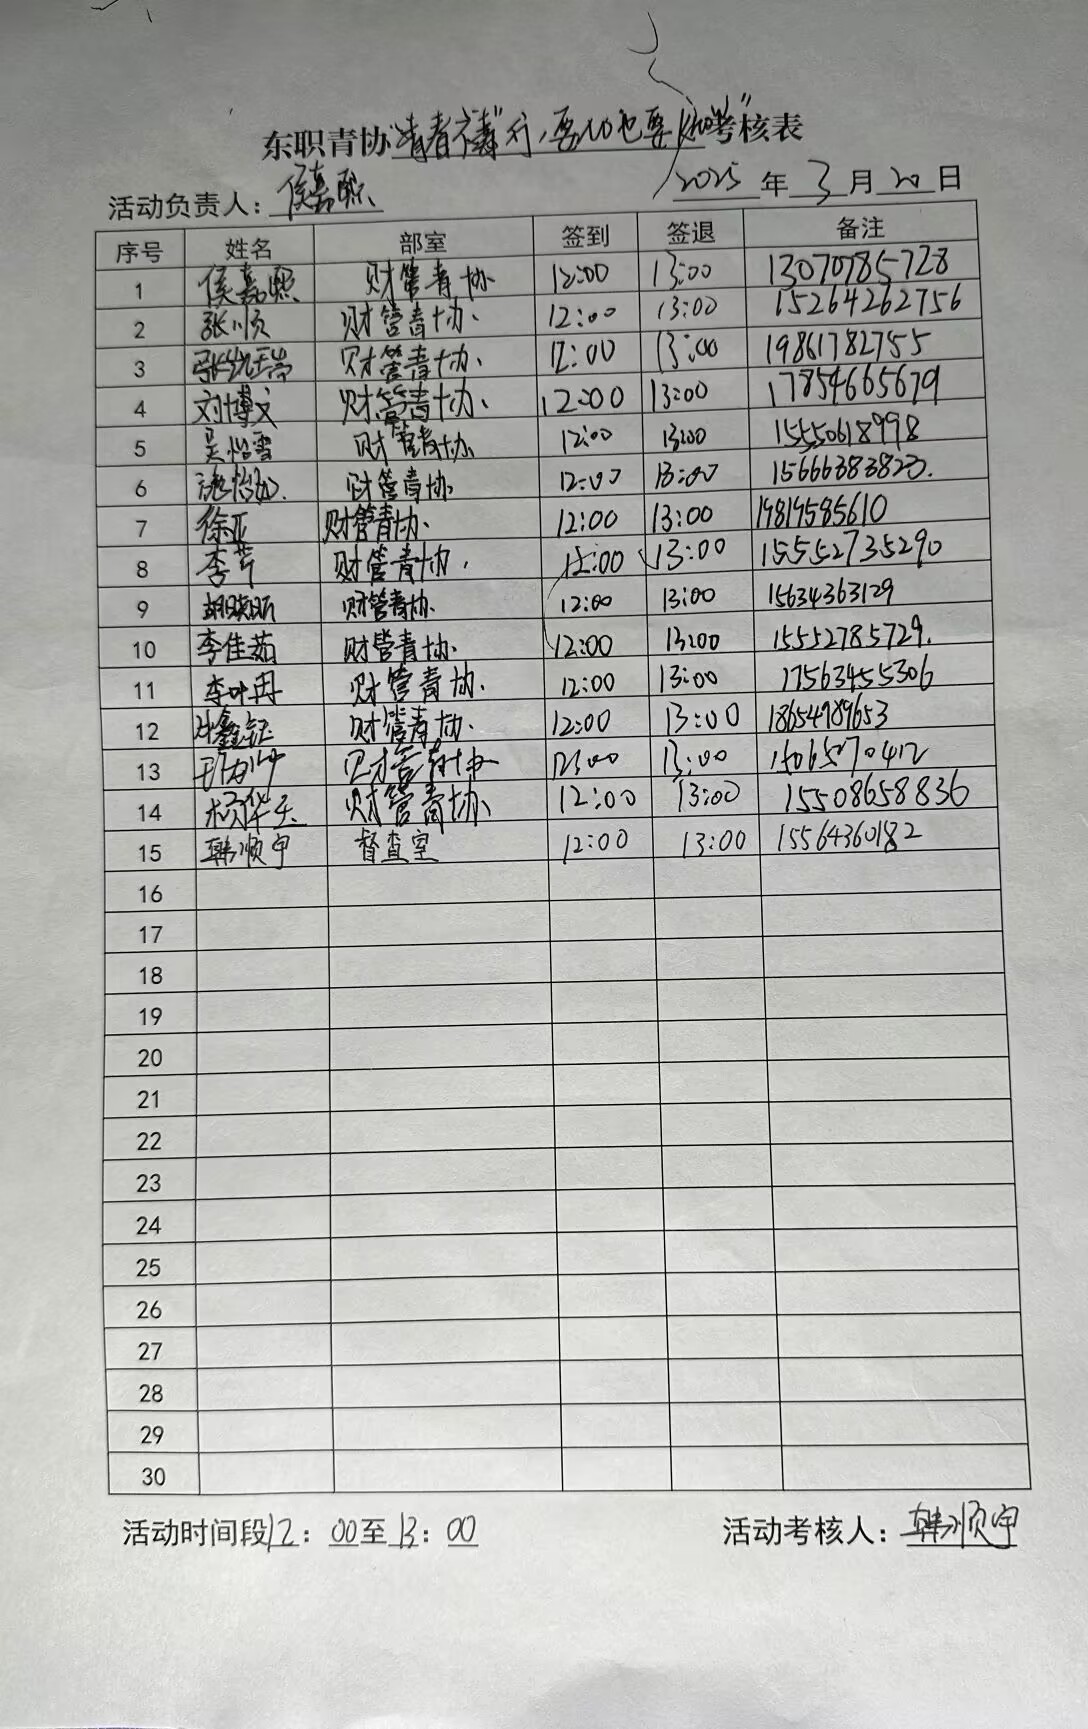 东职青协"青春 行, 要 也要 "考核表
活动负责人: 侯嘉熙 2025 年 3 月 20 日
序号 姓名 部室 签到 签退 备注
1 侯嘉熙 财管青协 12:00 13:00 13070785728
2 张顺 财管青协 12:00 13:00 15264262756
3 财管青协 12:00 13:00 19861782755
4 刘博文 财管青协 12:00 13:00 17854665679
5 吴怡雪 财管青协 12:00 13:00 15550618998
6 财管青协 12:00 13:00 15666383823.
7 徐亚 财管青协 12:00 13:00 19819585610
8 李芹 财管青协 12:00 13:00 15552735290
9 胡晓昕 财管青协 12:00 13:00 15634363129
10 李佳茹 财管青协 12:00 13:00 15552785729.
11 李叶冉 财管青协 12:00 13:00 17563455306
12 财管青协 12:00 13:00 18654989653
13 财管青协 12:00 13:00 15065270412
14 杨华天 财管青协 12:00 13:00 15508658836
15 韩顺宇 督查室 12:00 13:00 15564360182
16
17
18
19
20
21
22
23
24
25
26
27
28
29
30
活动时间段12: 00至13: 00 活动考核人: 韩顺宇